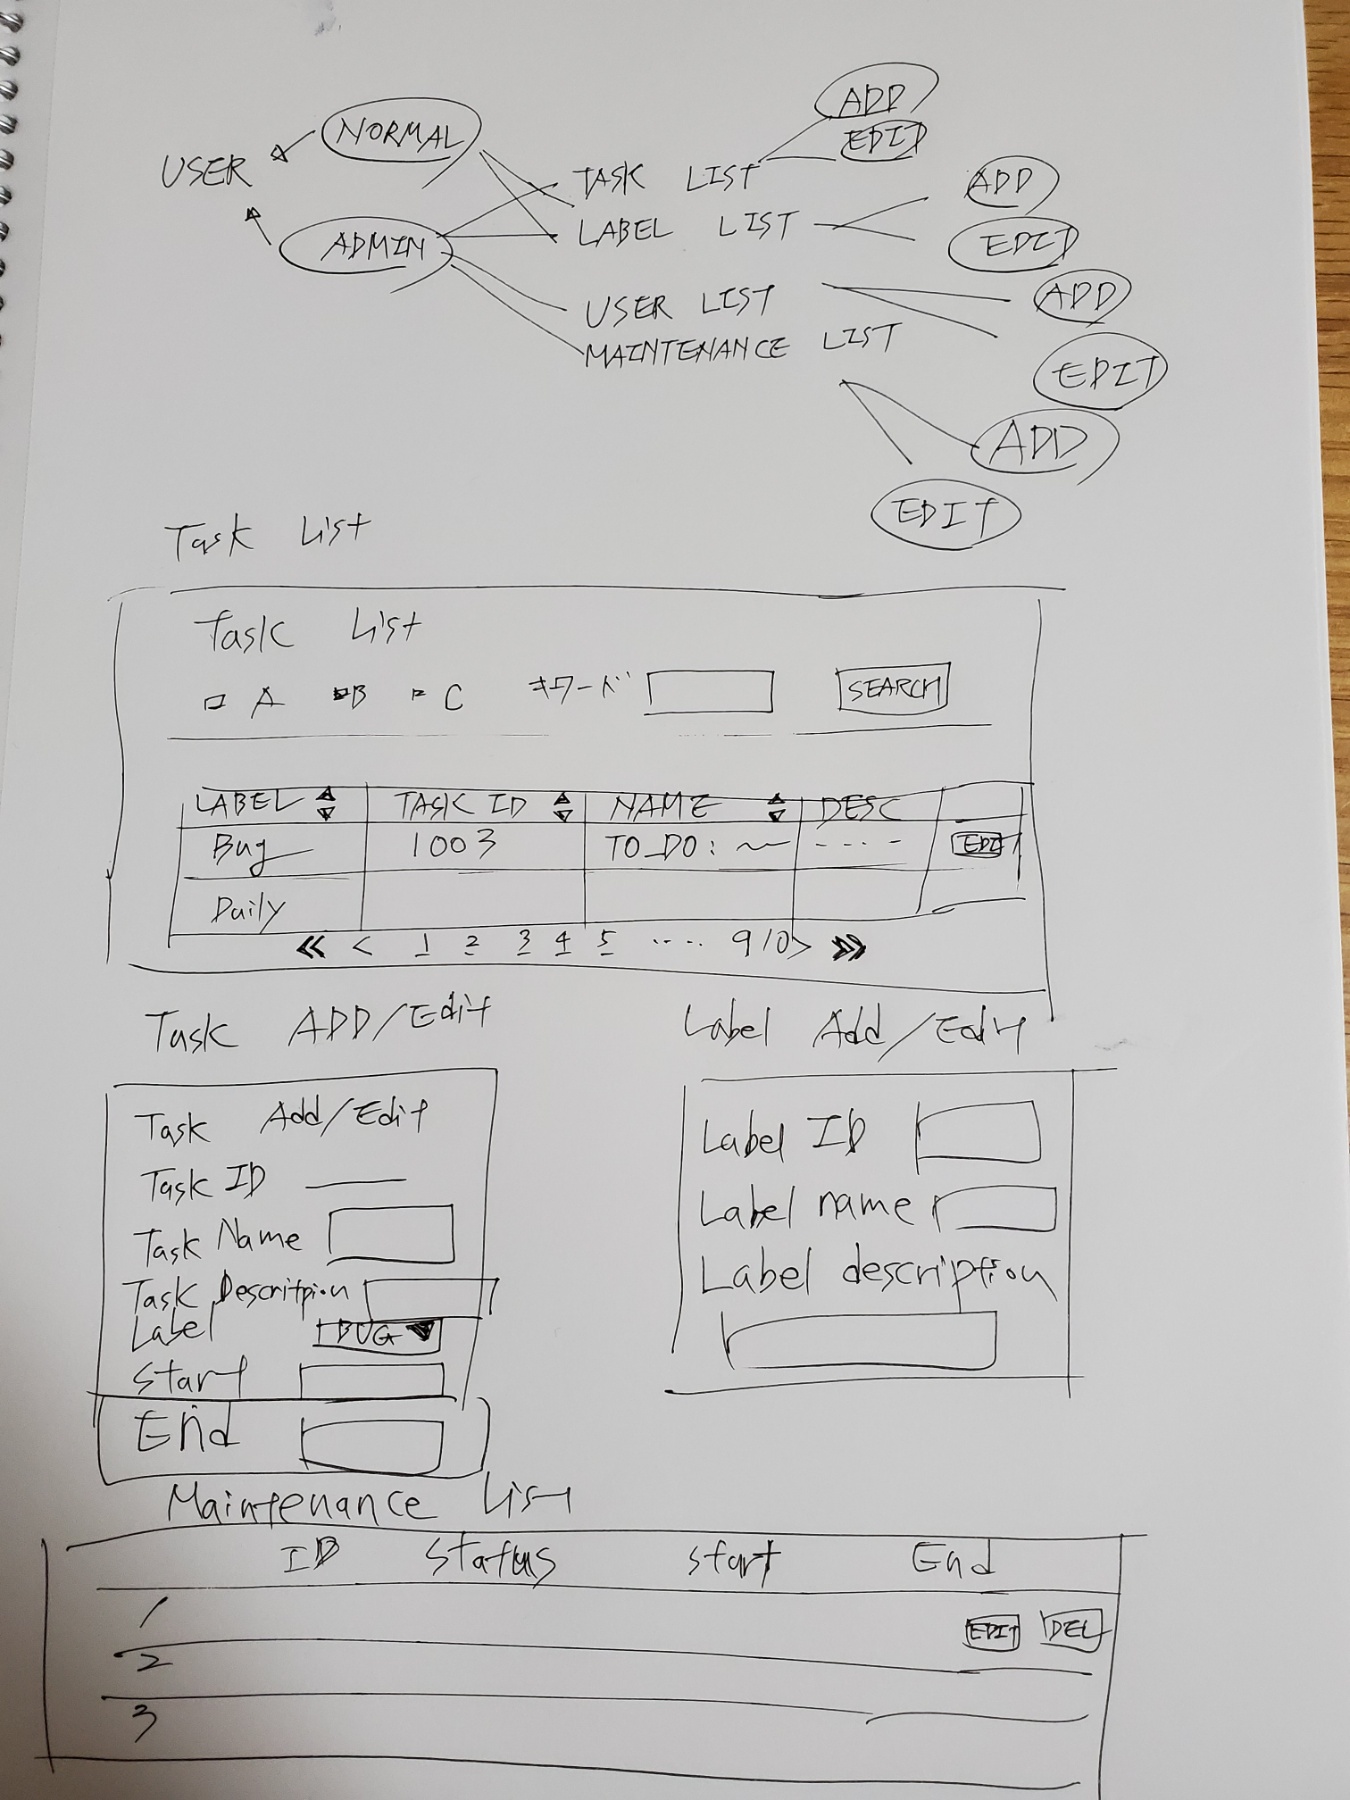 NORMAL
USER
ADMIN
ADD
EDIT
TASK LIST
ADD
LABEL LIST
EDIT
USER LIST
ADD
MAINTENANCE LIST
EDIT
ADD
EDIT
Task List
Task List
A B C キーワード SEARCH
LABEL TASK ID NAME DESC
Bug 1003 TO_DO: ---- EDIT
Daily
« < 1 2 3 4 5 .... 9 10 > »
Task ADD/Edit
Label Add/Edit
Task Add/Edit
Task ID
Task Name
Task Descritpion
Label BUG ▼
Start
End
Label ID
Label name
Label description
Maintenance List
ID Status start End
1 EDIT DEL
2
3